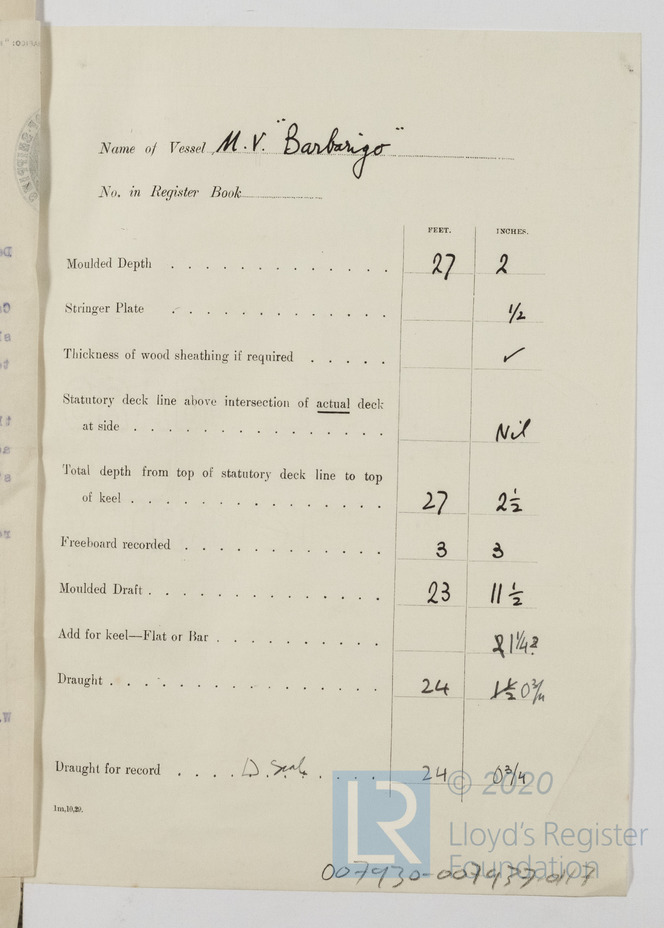 Name of Vessel M.V. "Barbarigo"
No. in Register Book
FEET. INCHES.
Moulded Depth 27 2
Stringer Plate 1/2
Thickness of wood sheathing if required ✓
Statutory deck line above intersection of actual deck
at side Nil
Total depth from top of statutory deck line to top
of keel 27 2 1/2
Freeboard recorded 3 3
Moulded Draft 23 11 1/2
Add for keel—Flat or Bar 1 1/4
Draught 24 0 3/4
Draught for record 24 0 3/4
1m,10,29.
© 2020
LR
Lloyd's Register
Foundation
007930-007937-0117